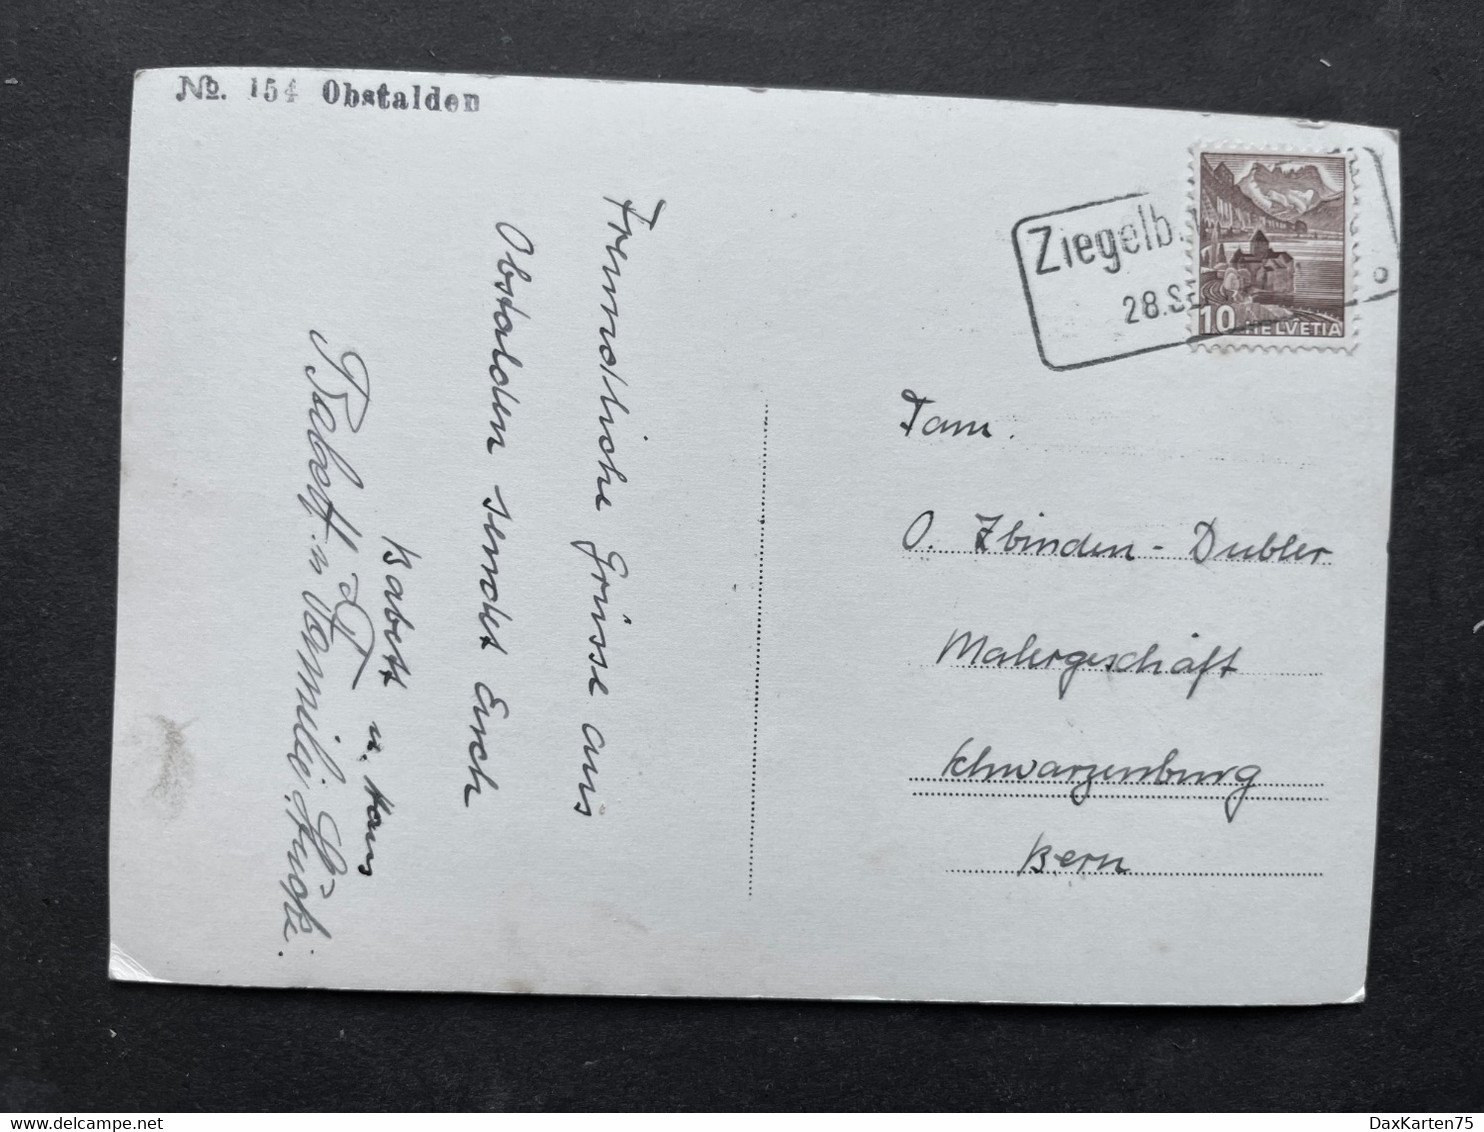 No. 154 Obstalden
Freundliche Grüsse aus
Obstalden sendet Euch
Babett u. Hans
u. Familie
Ziegelb
28.S
10 HELVETIA
Fam.
O. Zbinden - Dubler
Malergeschäft
Schwarzenburg
Bern
delcampe.net
DaxKarten75